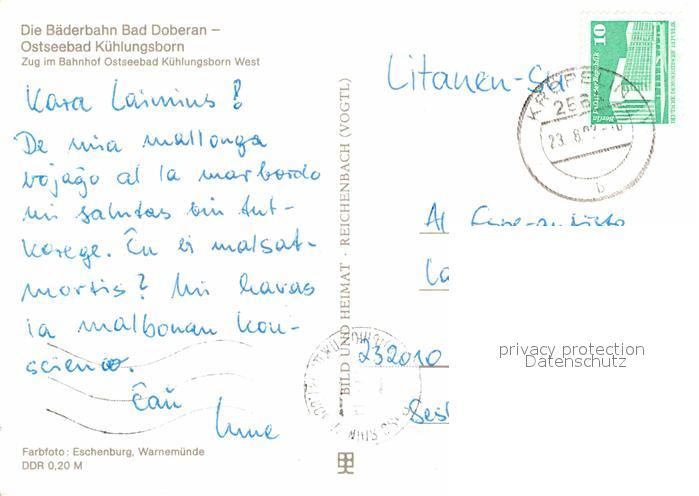 Die Bäderbahn Bad Doberan –
Ostseebad Kühlungsborn
Zug im Bahnhof Ostseebad Kühlungsborn West
Kara Laimius!
De mia mallonga
vojaĝo al la marbordo
mi salutas vin tut-
korege. Ĉu vi malsat-
mortis? Mi havas
ja malbonan kon-
sciencon.
Ĉaŭ
Farbfoto: Eschenburg, Warnemünde
DDR 0,20 M
BILD UND HEIMAT · REICHENBACH (VOGTL)
10
DEUTSCHE DEMOKRATISCHE REPUBLIK
KRÖPELIN
23.8.
b
Litauen-
Al
232010
privacy protection
Datenschutz